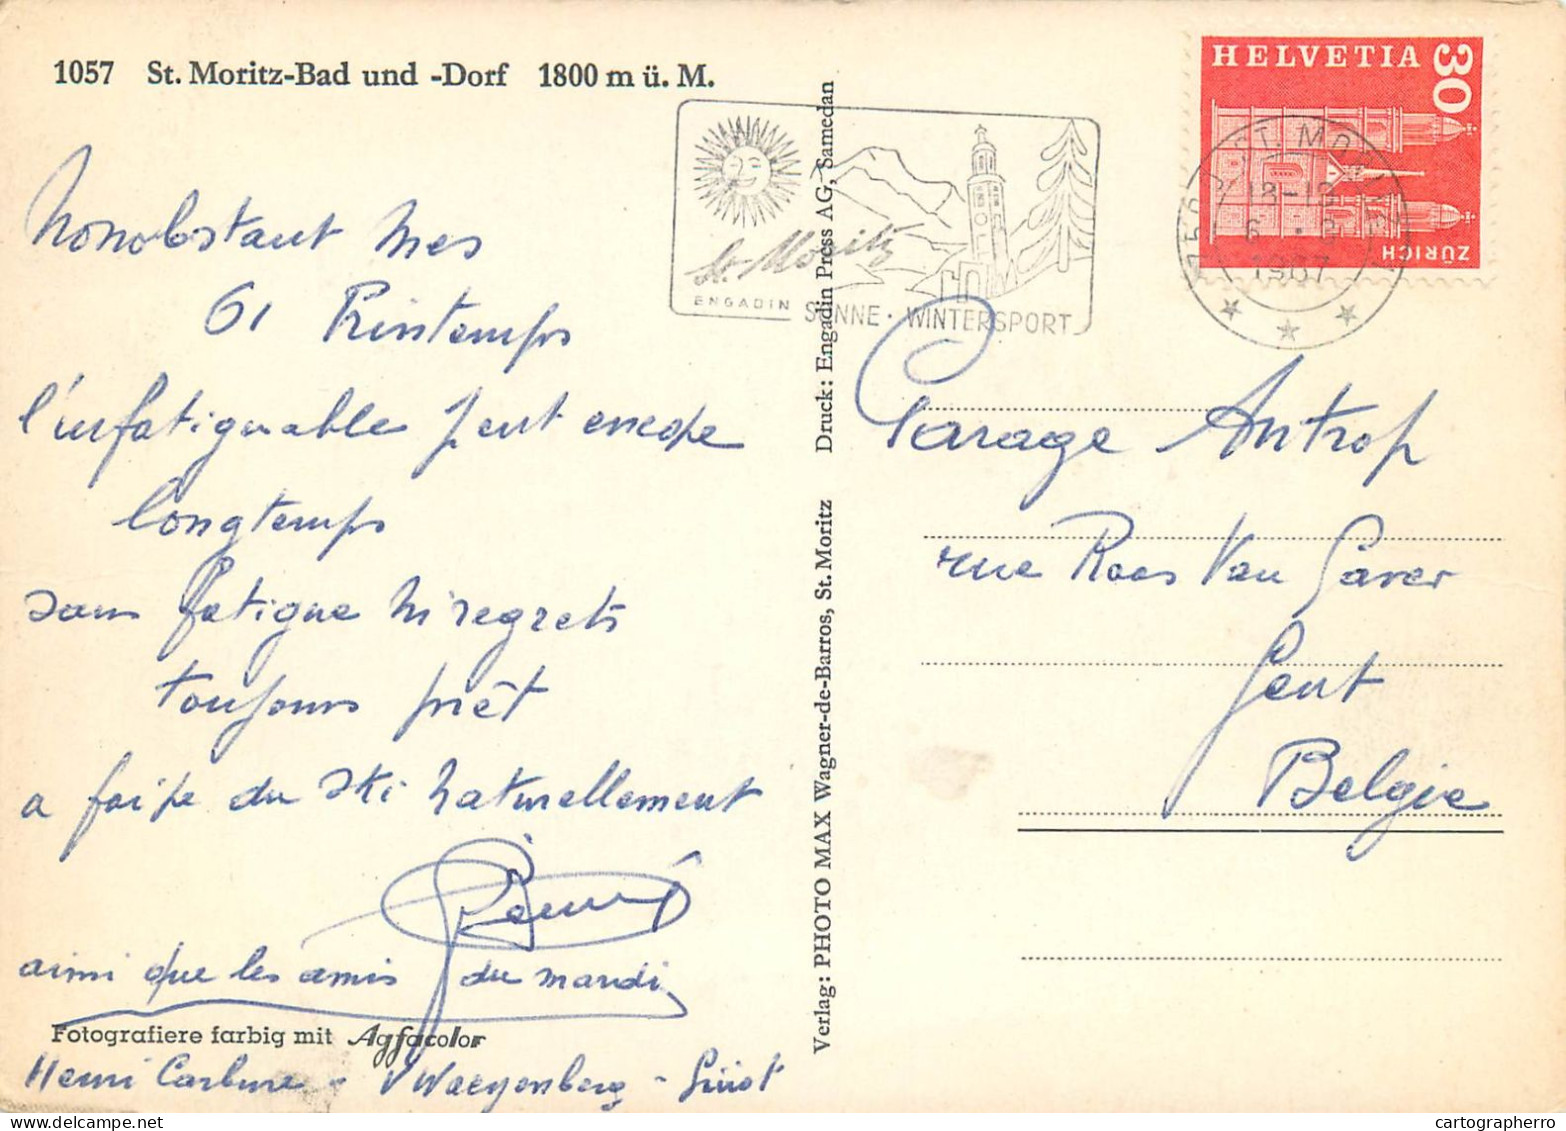 1057 St. Moritz-Bad und -Dorf 1800 m ü. M.
Nonobstant mes
61 Printemps
l'infatiguable peut encore
longtemps
sans fatigue ni regrets
toujours prêt
a faire du ski naturellement
ainsi que les amis du mardi
Fotografiere farbig mit Agfacolor
Henri Carbure - V Waeyenberg -
Verlag: PHOTO MAX Wagner-de-Barros, St. Moritz Druck: Engadin Press AG, Samedan
St. Moritz
ENGADIN SONNE · WINTERSPORT
HELVETIA
30
ZÜRICH
7500 ST. MORITZ
18-19
6
1967
Garage Antrop
rue Raas Van Gaver
Gent
Belgie
cartographerro